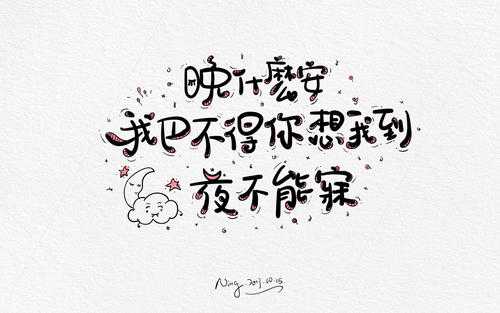 晚什麼安
我巴不得你想我到
夜不能寐
Ning